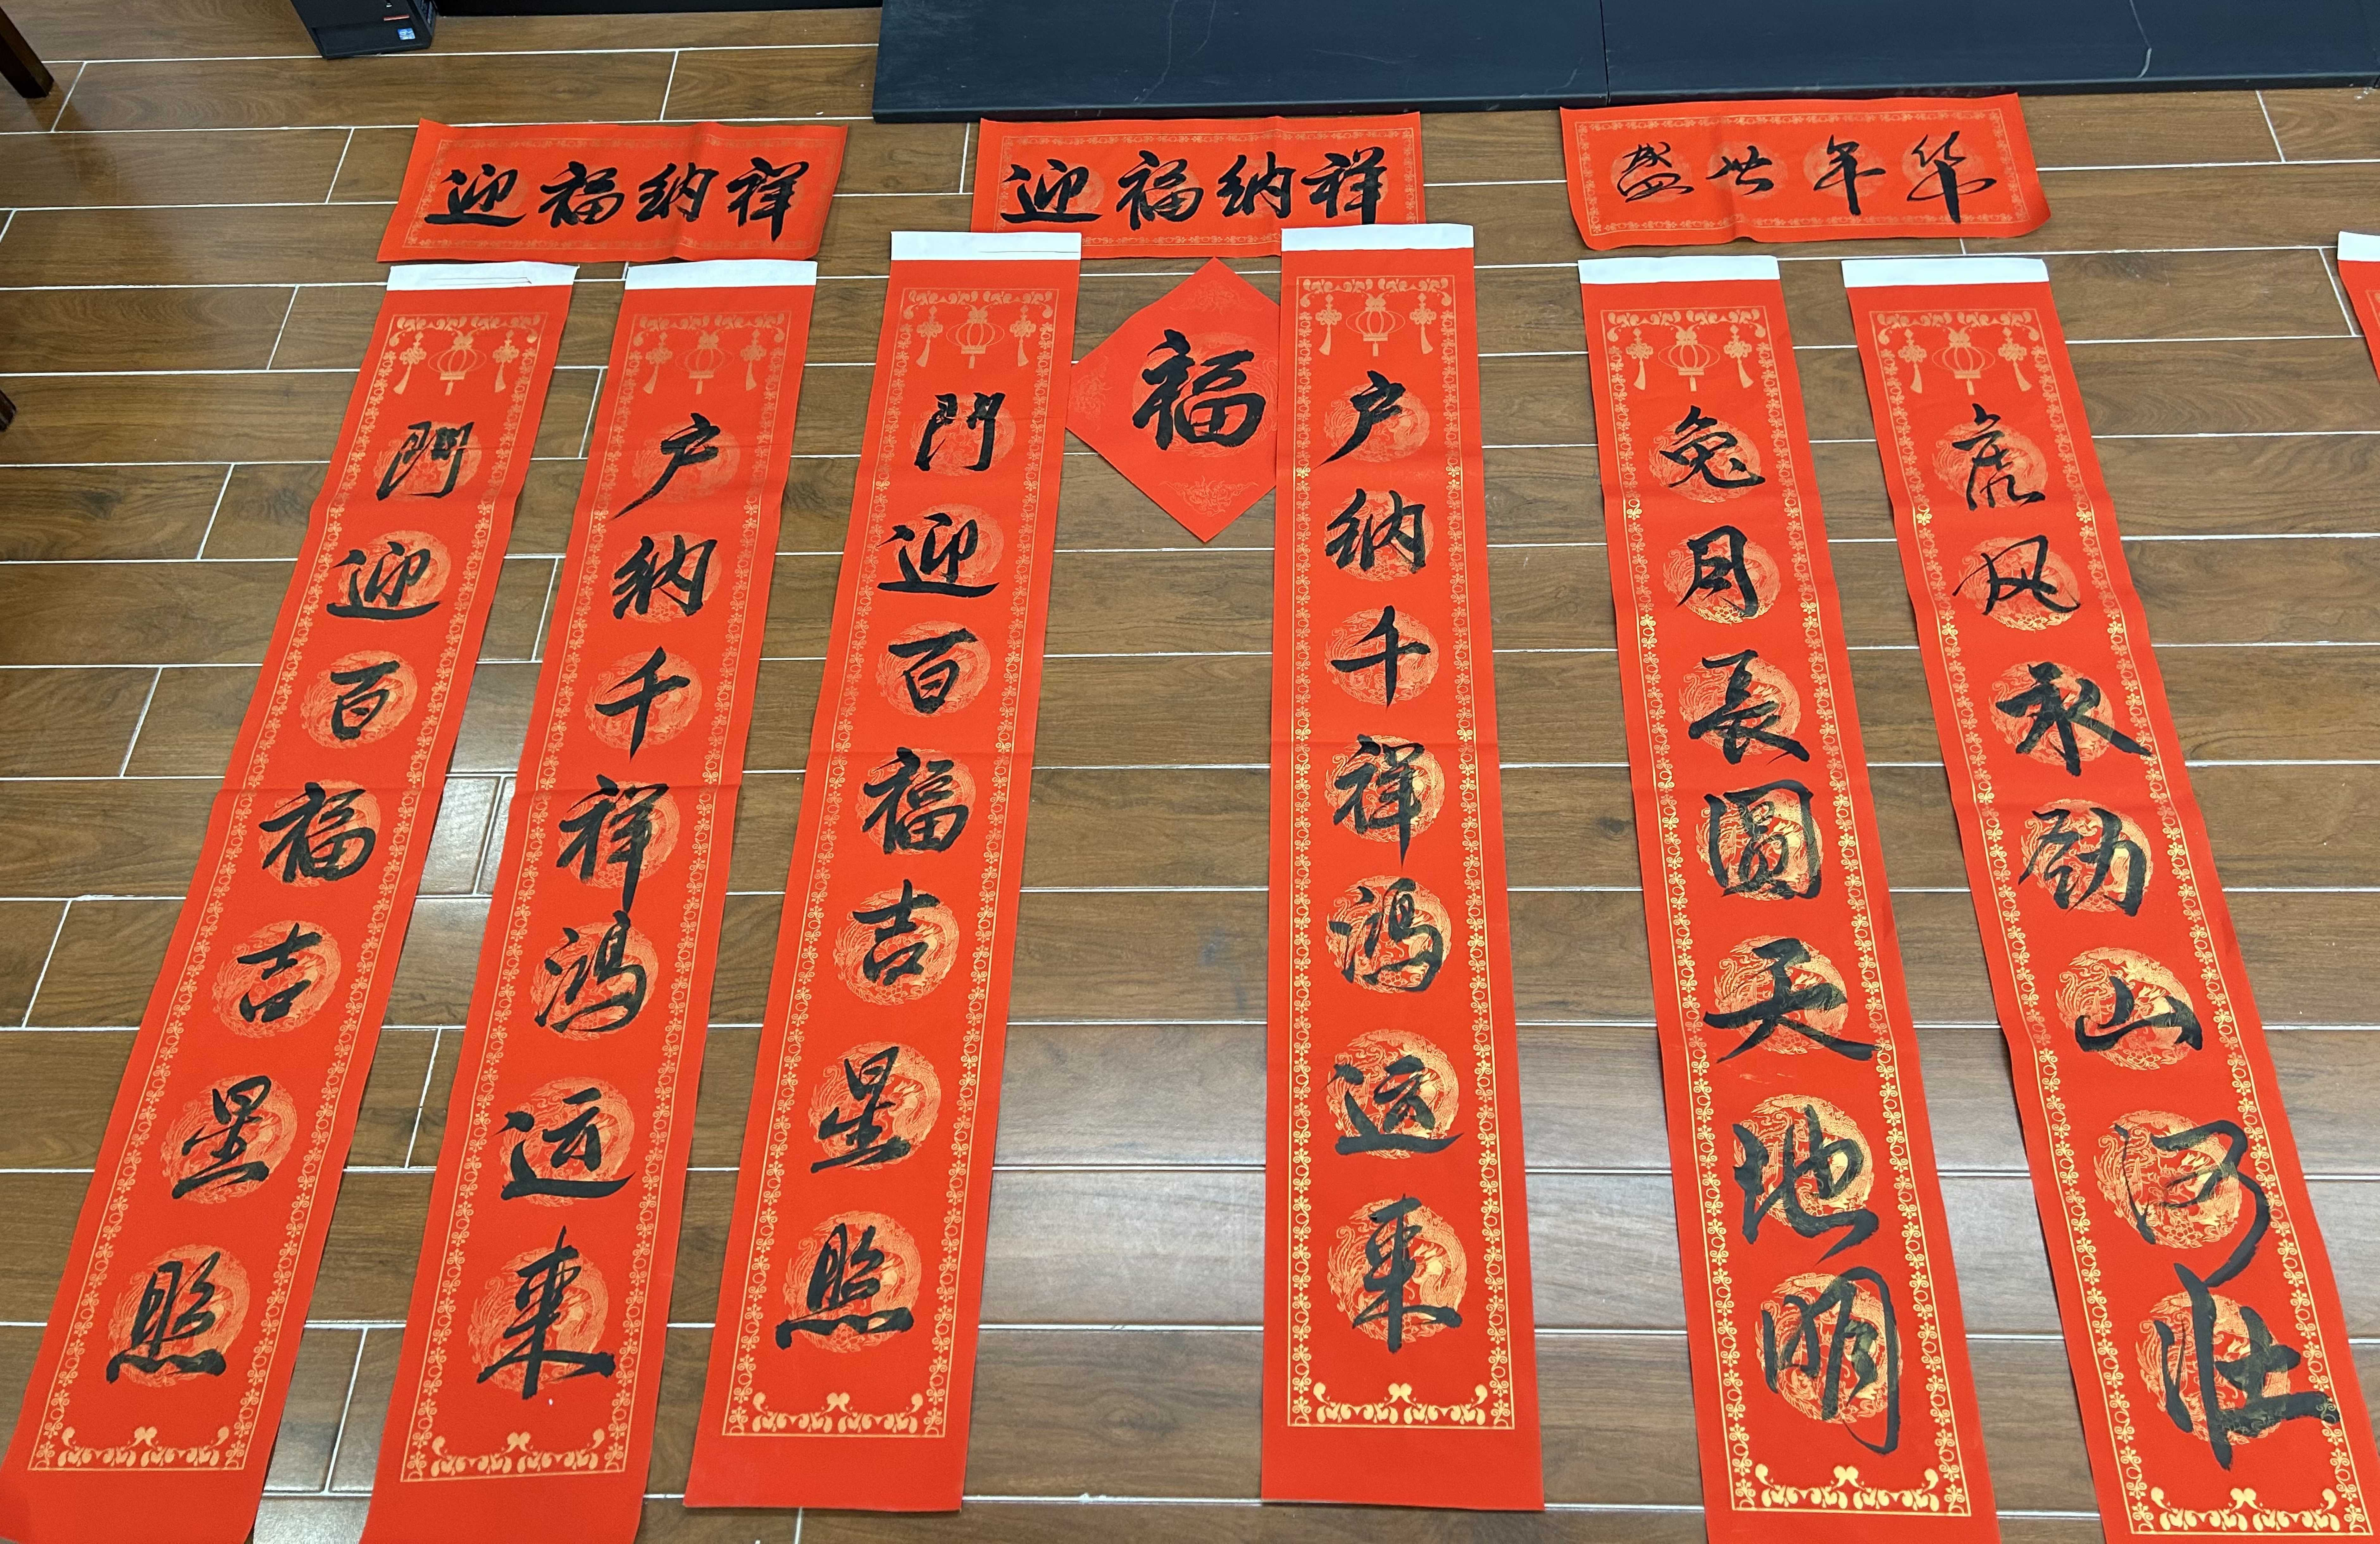 迎福纳祥
門迎百福吉星照
户纳千祥鴻运来
迎福纳祥
門迎百福吉星照
福
户纳千祥鴻运来
盛世年华
兔月長圆天地明
虎风永劲山河壮